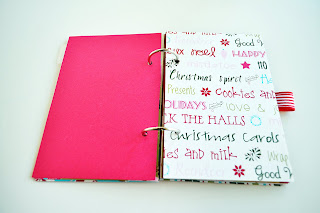 Good
noel HAPPY
HO
Christmas spirit
Presents cookies and
OLIDAYS love &
K THE HALLS
Christmas Cards
es and milk Wrap
Good